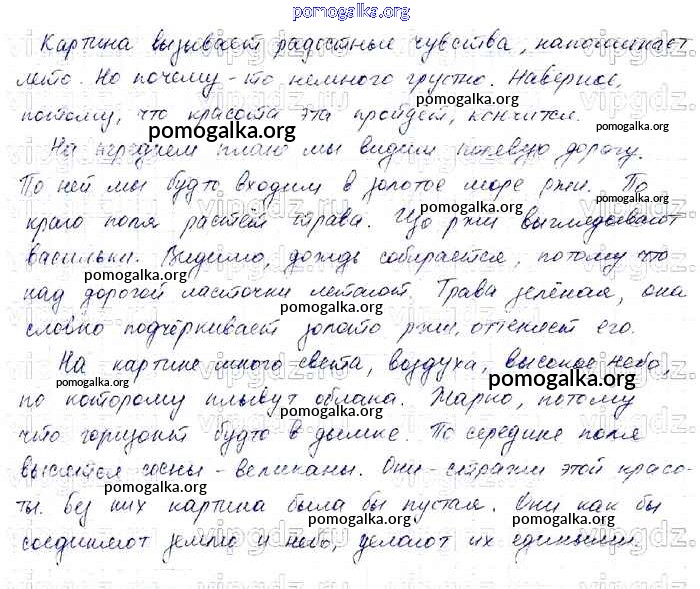 pomogalka.org
Картина вызывает радостные чувства, напоминает
лето. Но почему-то немного грустно. Наверное,
потому, что красота эта пройдет, кончится.
pomogalka.org
pomogalka.org
На переднем плане мы видим полевую дорогу.
pomogalka.org
По ней мы будто входим в золотое море ржи. По
pomogalka.org
краю поля растёт трава. Изо ржи выглядывают
pomogalka.org
васильки. Видимо, дождь собирается, потому что
pomogalka.org
над дорогой ласточки летают. Трава зелёная, она
pomogalka.org
словно подчёркивает золото ржи, оттеняет его.
На картине много света, воздуха, высокое небо,
pomogalka.org
pomogalka.org
по которому плывут облака. Жарко, потому
pomogalka.org
что горизонт будто в дымке. По середине поля
высятся сосны-великаны. Они-стражи этой красо-
pomogalka.org
ты. Без них картина была бы пустая. Они как бы
pomogalka.org
pomogalka.org
соединяют землю и небо, делают их едиными.